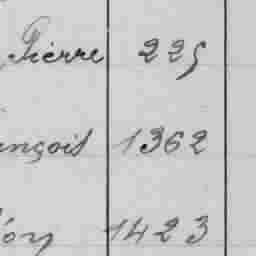 Pierre 225
ançois 1362
éon 1423